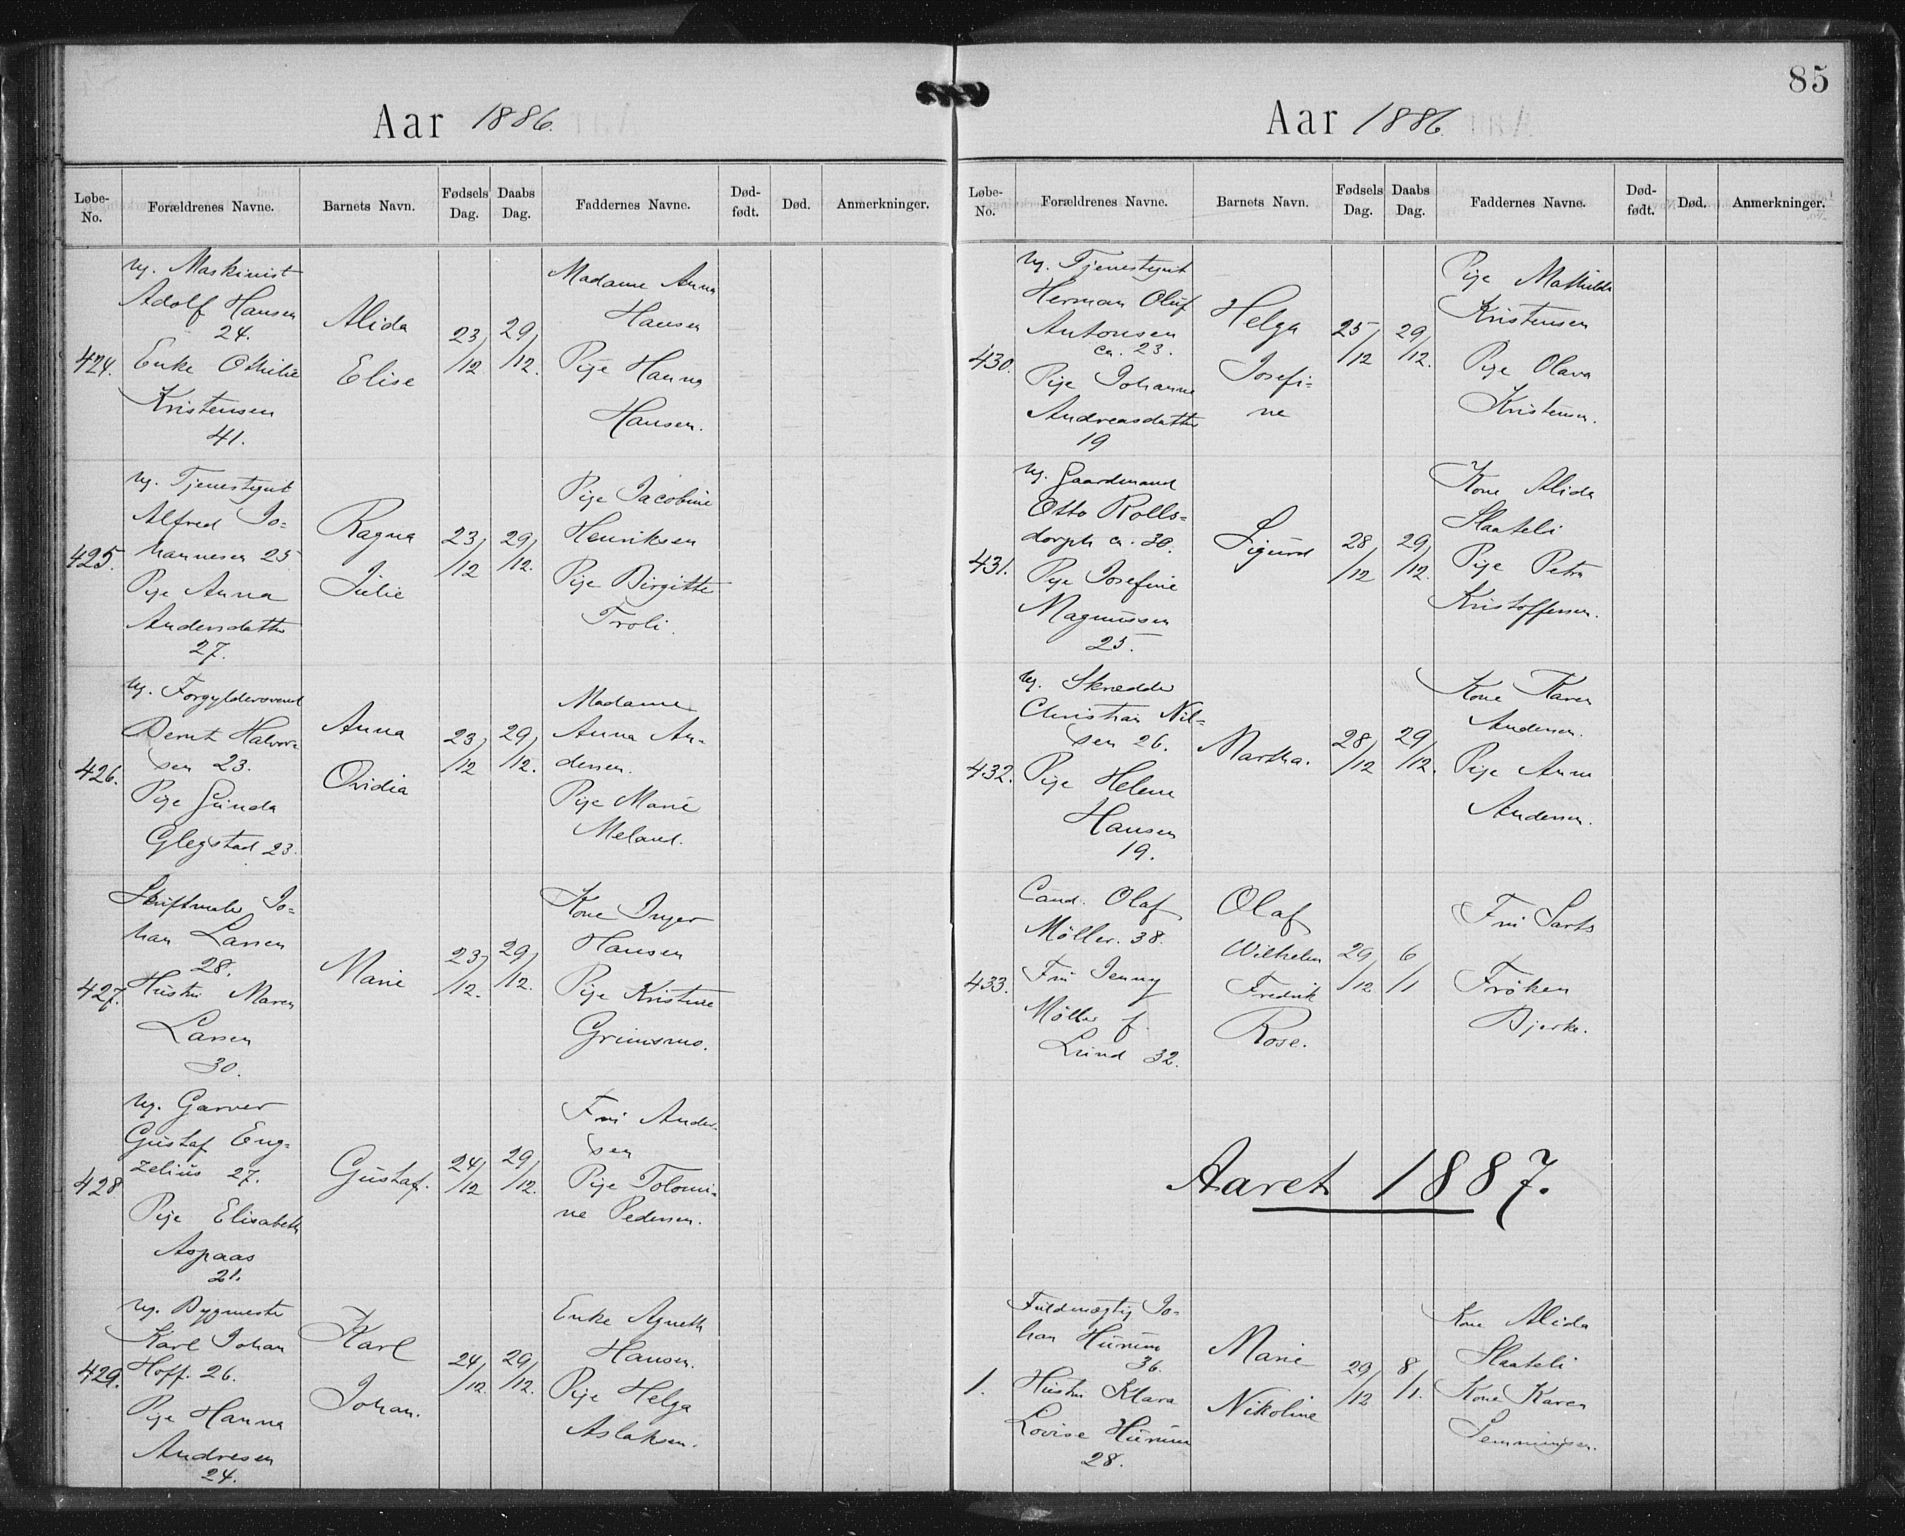 85
Aar 1886.
Løbe-No. Forældrenes Navne. Barnets Navn. Fødsels Dag. Daabs Dag. Faddernes Navne. Død-født. Død. Anmerkninger.
424.
Ug. Maskinist
Adolf Hansen
24.
Enke Othilie
Kristensen
41.
Alida
Elise
23/12
29/12.
Madame Anna
Hansen
Pige Hanna
Hansen.
425.
Ug. Tjenestgut
Alfred Jo-
hannesen 25
Pige Anna
Andersdatter
27.
Ragna
Julie
23/12
29/12.
Pige Jacobine
Henriksen
Pige Birgitte
Troli.
426.
Ug. Forgyldersvend
Bernt Halvor-
sen 23.
Pige Gunda
Glegstad 23.
Anna
Ovidia
23/12
29/12.
Madame
Anna An-
dersen.
Pige Marie
Meland.
427.
Skiftmaler Jo-
han Larsen
28.
Hustru Maren
Larsen
30.
Marie
23/12.
29/12.
Kone Inger
Hansen
Pige Kristine
Grimsmo.
428
Ug. Garver
Gustaf Eng-
zelius 27.
Pige Elisabeth
Aspaas
21.
Gustaf.
24/12
29/12.
Fru Ander-
sen
Pige Tolomi-
ne Pedersen.
429.
Ug. Bygmester
Karl Johan
Hoff. 26.
Pige Hanna
Andresen
24.
Karl
Johan.
24/12
29/12.
Enke Agneth
Hansen.
Pige Helga
Aslaksen.
Aar 1886.
Løbe-No. Forældrenes Navne. Barnets Navn. Fødsels Dag. Daabs Dag. Faddernes Navne. Død-født. Død. Anmerkninger.
430.
Ug. Tjenestgut
Herman Oluf
Antonsen
ca. 23.
Pige Johanne
Andreasdatter
19
Helga
Josefi-
ne
25/12
29/12.
Pige Mathilde
Kristensen
Pige Olava
Kristensen.
431.
Ug. Gaardmand
Otto Rolls-
dorph ca. 30.
Pige Josefine
Magnussen
25.
Sigurd
28/12
29/12.
Kone Alida
Slaateli
Pige Petra
Kristoffersen.
432.
Ug. Skrædder
Christian Nil-
sen 26.
Pige Helene
Hansen
19.
Martha.
28/12
29/12.
Kone Karen
Andersen.
Pige Anna
Andersen.
433.
Cand. Olaf
Møller. 38.
Fru Jenny
Møller f.
Lund 32.
Olaf
Wilhelm
Fredrik
Rose.
29/12
6/1
Fru Sarts
Frøken
Bjerke.
Aaret 1887.
1.
Fuldmægtig Jo-
han Hurum
36.
Hustru Klara
Lovise Hurum
28.
Marie
Nikoline
29/12
8/1.
Kone Alida
Slaateli
Kone Karen
Semmingsen.